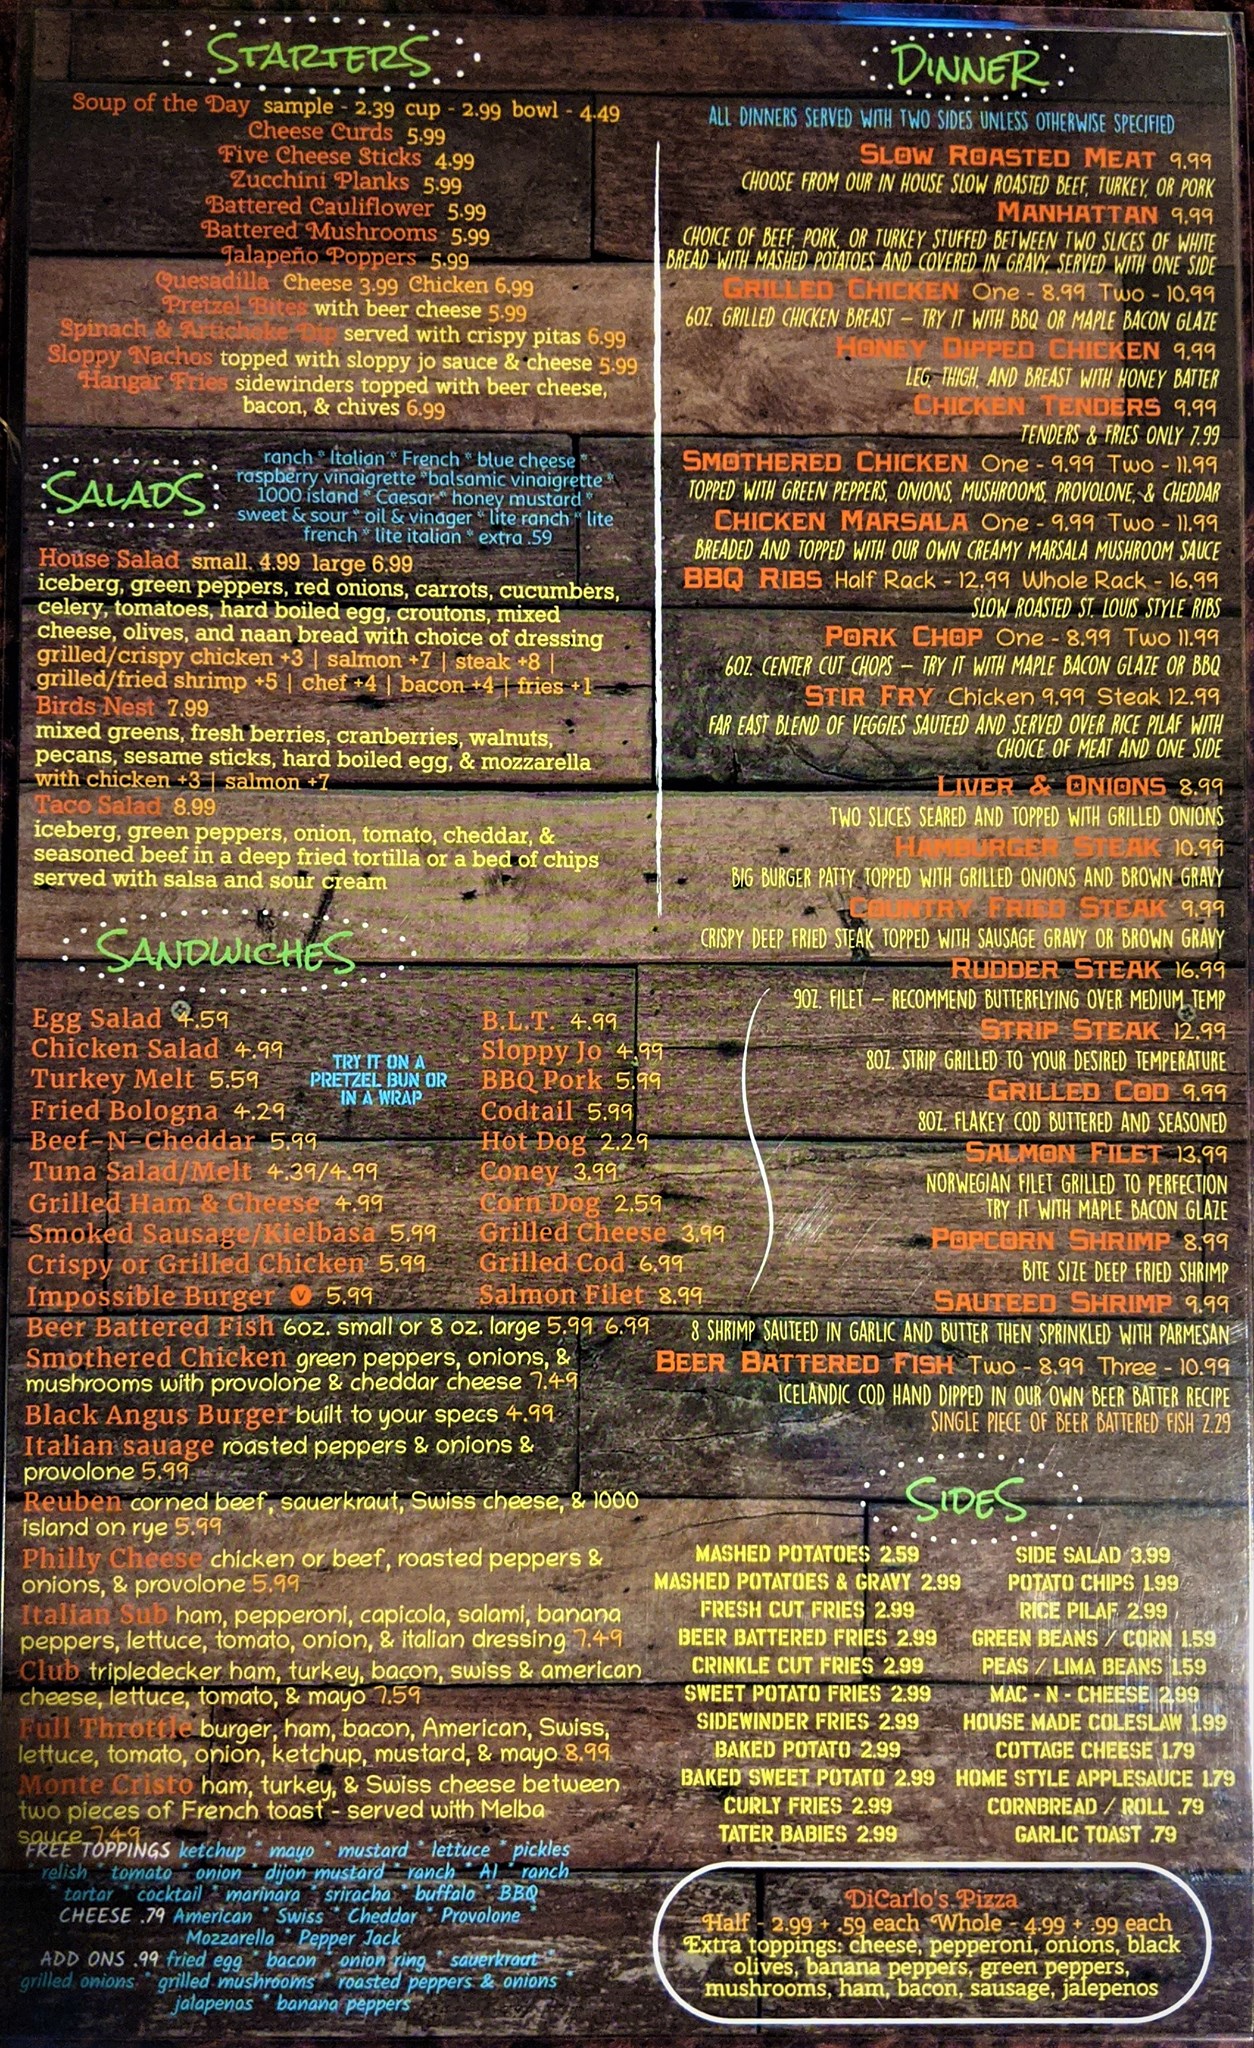 STARTERS
Soup of the Day sample - 2.39 cup - 2.99 bowl - 4.49
Cheese Curds 5.99
Five Cheese Sticks 4.99
Zucchini Planks 5.99
Battered Cauliflower 5.99
Battered Mushrooms 5.99
Jalapeño Poppers 5.99
Quesadilla Cheese 3.99 Chicken 6.99
Pretzel Bites with beer cheese 5.99
Spinach & Artichoke Dip served with crispy pitas 6.99
Sloppy Nachos topped with sloppy jo sauce & cheese 5.99
Hangar Fries sidewinders topped with beer cheese,
bacon, & chives 6.99
SALADS
ranch * Italian * French * blue cheese *
raspberry vinaigrette *balsamic vinaigrette *
1000 island * Caesar * honey mustard *
sweet & sour * oil & vinager * lite ranch * lite
french * lite italian * extra .59
House Salad small 4.99 large 6.99
iceberg, green peppers, red onions, carrots, cucumbers,
celery, tomatoes, hard boiled egg, croutons, mixed
cheese, olives, and naan bread with choice of dressing
grilled/crispy chicken +3 | salmon +7 | steak +8 |
grilled/fried shrimp +5 | chef +4 | bacon +4 | fries +1
Birds Nest 7.99
mixed greens, fresh berries, cranberries, walnuts,
pecans, sesame sticks, hard boiled egg, & mozzarella
with chicken +3 | salmon +7
Taco Salad 8.99
iceberg, green peppers, onion, tomato, cheddar, &
seasoned beef in a deep fried tortilla or a bed of chips
served with salsa and sour cream
SANDWICHES
Egg Salad 4.59
Chicken Salad 4.99
Turkey Melt 5.59
Fried Bologna 4.29
Beef-N-Cheddar 5.99
Tuna Salad/Melt 4.39/4.99
Grilled Ham & Cheese 4.99
Smoked Sausage/Kielbasa 5.99
Crispy or Grilled Chicken 5.99
Impossible Burger V 5.99
TRY IT ON A
PRETZEL BUN OR
IN A WRAP
B.L.T. 4.99
Sloppy Jo 4.99
BBQ Pork 5.99
Codtail 5.99
Hot Dog 2.29
Coney 3.99
Corn Dog 2.59
Grilled Cheese 3.99
Grilled Cod 6.99
Salmon Filet 8.99
Beer Battered Fish 6oz. small or 8 oz. large 5.99 6.99
Smothered Chicken green peppers, onions, &
mushrooms with provolone & cheddar cheese 7.49
Black Angus Burger built to your specs 4.99
Italian sauage roasted peppers & onions &
provolone 5.99
Reuben corned beef, sauerkraut, Swiss cheese, & 1000
island on rye 5.99
Philly Cheese chicken or beef, roasted peppers &
onions, & provolone 5.99
Italian Sub ham, pepperoni, capicola, salami, banana
peppers, lettuce, tomato, onion, & italian dressing 7.49
Club tripledecker ham, turkey, bacon, swiss & american
cheese, lettuce, tomato, & mayo 7.59
Full Throttle burger, ham, bacon, American, Swiss,
lettuce, tomato, onion, ketchup, mustard, & mayo 8.99
Monte Cristo ham, turkey, & Swiss cheese between
two pieces of French toast - served with Melba
sauce 7.49
FREE TOPPINGS ketchup * mayo * mustard * lettuce * pickles
* relish * tomato * onion * dijon mustard * ranch * A1 * ranch
* tartar * cocktail * marinara * sriracha * buffalo * BBQ
CHEESE .79 American * Swiss * Cheddar * Provolone *
Mozzarella * Pepper Jack
ADD ONS .99 fried egg * bacon * onion ring * sauerkraut *
grilled onions * grilled mushrooms * roasted peppers & onions *
jalapenos * banana peppers
DINNER
ALL DINNERS SERVED WITH TWO SIDES UNLESS OTHERWISE SPECIFIED
SLOW ROASTED MEAT 9.99
CHOOSE FROM OUR IN HOUSE SLOW ROASTED BEEF, TURKEY, OR PORK
MANHATTAN 9.99
CHOICE OF BEEF, PORK, OR TURKEY STUFFED BETWEEN TWO SLICES OF WHITE
BREAD WITH MASHED POTATOES AND COVERED IN GRAVY, SERVED WITH ONE SIDE
GRILLED CHICKEN One - 8.99 Two - 10.99
6OZ. GRILLED CHICKEN BREAST – TRY IT WITH BBQ OR MAPLE BACON GLAZE
HONEY DIPPED CHICKEN 9.99
LEG, THIGH, AND BREAST WITH HONEY BATTER
CHICKEN TENDERS 9.99
TENDERS & FRIES ONLY 7.99
SMOTHERED CHICKEN One - 9.99 Two - 11.99
TOPPED WITH GREEN PEPPERS, ONIONS, MUSHROOMS, PROVOLONE, & CHEDDAR
CHICKEN MARSALA One - 9.99 Two - 11.99
BREADED AND TOPPED WITH OUR OWN CREAMY MARSALA MUSHROOM SAUCE
BBQ RIBS Half Rack - 12.99 Whole Rack - 16.99
SLOW ROASTED ST. LOUIS STYLE RIBS
PORK CHOP One - 8.99 Two 11.99
6OZ. CENTER CUT CHOPS – TRY IT WITH MAPLE BACON GLAZE OR BBQ
STIR FRY Chicken 9.99 Steak 12.99
FAR EAST BLEND OF VEGGIES SAUTEED AND SERVED OVER RICE PILAF WITH
CHOICE OF MEAT AND ONE SIDE
LIVER & ONIONS 8.99
TWO SLICES SEARED AND TOPPED WITH GRILLED ONIONS
HAMBURGER STEAK 10.99
BIG BURGER PATTY TOPPED WITH GRILLED ONIONS AND BROWN GRAVY
COUNTRY FRIED STEAK 9.99
CRISPY DEEP FRIED STEAK TOPPED WITH SAUSAGE GRAVY OR BROWN GRAVY
RUDDER STEAK 16.99
9OZ. FILET – RECOMMEND BUTTERFLYING OVER MEDIUM TEMP
STRIP STEAK 12.99
8OZ. STRIP GRILLED TO YOUR DESIRED TEMPERATURE
GRILLED COD 9.99
8OZ. FLAKEY COD BUTTERED AND SEASONED
SALMON FILET 13.99
NORWEGIAN FILET GRILLED TO PERFECTION
TRY IT WITH MAPLE BACON GLAZE
POPCORN SHRIMP 8.99
BITE SIZE DEEP FRIED SHRIMP
SAUTEED SHRIMP 9.99
8 SHRIMP SAUTEED IN GARLIC AND BUTTER THEN SPRINKLED WITH PARMESAN
BEER BATTERED FISH Two - 8.99 Three - 10.99
ICELANDIC COD HAND DIPPED IN OUR OWN BEER BATTER RECIPE
SINGLE PIECE OF BEER BATTERED FISH 2.29
SIDES
MASHED POTATOES 2.59
MASHED POTATOES & GRAVY 2.99
FRESH CUT FRIES 2.99
BEER BATTERED FRIES 2.99
CRINKLE CUT FRIES 2.99
SWEET POTATO FRIES 2.99
SIDEWINDER FRIES 2.99
BAKED POTATO 2.99
BAKED SWEET POTATO 2.99
CURLY FRIES 2.99
TATER BABIES 2.99
SIDE SALAD 3.99
POTATO CHIPS 1.99
RICE PILAF 2.99
GREEN BEANS / CORN 1.59
PEAS / LIMA BEANS 1.59
MAC - N - CHEESE 2.99
HOUSE MADE COLESLAW 1.99
COTTAGE CHEESE 1.79
HOME STYLE APPLESAUCE 1.79
CORNBREAD / ROLL .79
GARLIC TOAST .79
DiCarlo's Pizza
Half - 2.99 + .59 each Whole - 4.99 + .99 each
Extra toppings: cheese, pepperoni, onions, black
olives, banana peppers, green peppers,
mushrooms, ham, bacon, sausage, jalepenos